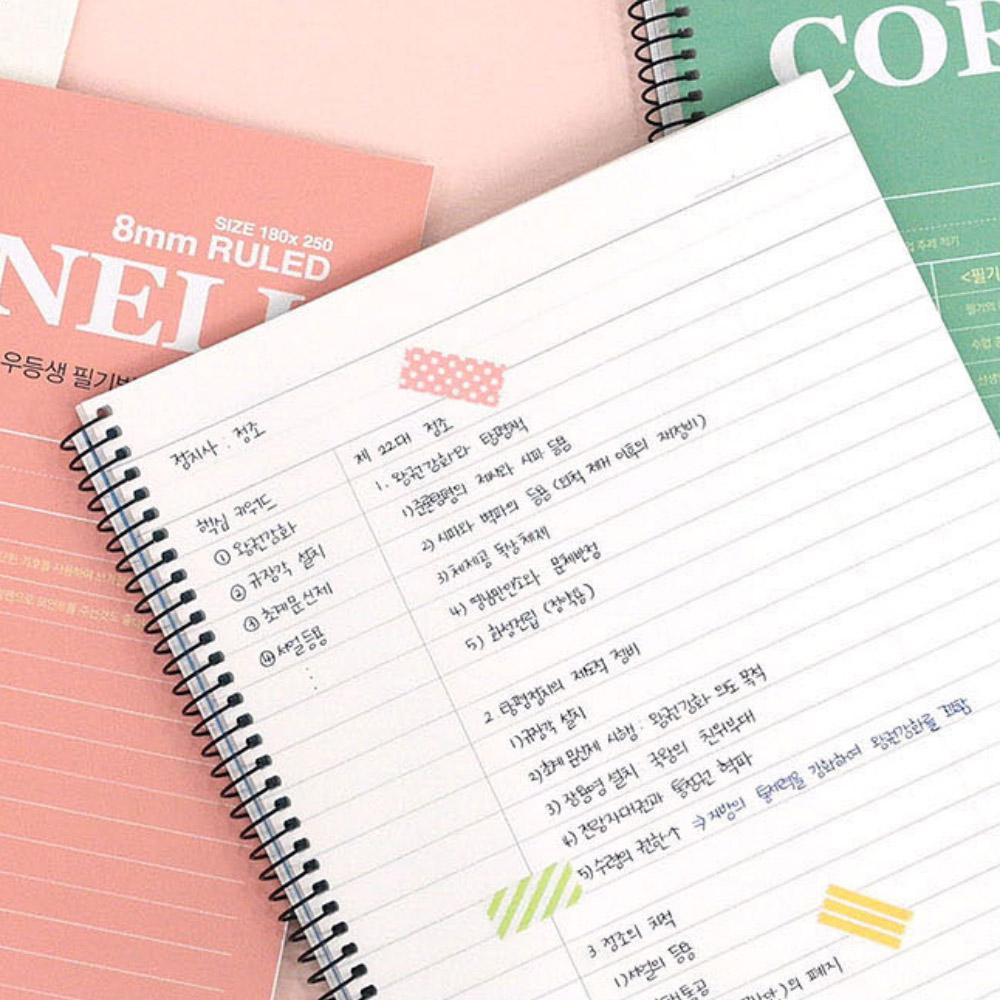 COR
SIZE 180x 250
8mm RULED
NELL
우등생 필기
<필기
정치사 : 정조
핵심 키워드
① 왕권강화
② 규장각 설치
③ 초계문신제
④ 서얼등용
⋮
제 22대 정조
1. 왕권강화와 탕평책
1) 준론탕평의 계승과 시파 등용
2) 시파와 벽파의 등용 (외척 제거 이후의 재정비)
3) 체제공 독상체제
4) 영남만인소와 문체반정
5) 화성건립 (정약용)
2 탕평정치의 제도적 정비
1) 규장각 설치
2) 초계문신제 시행 : 왕권강화 의도 목적
3) 장용영 설치 국왕의 친위부대
4) 전랑자대권과 통청권 혁파
5) 수령의 권한↑ ⇒ 지방의 통제력을 강화하여 왕권강화를 꾀함
3 정조의 치적
1) 서얼의 등용
통공
)의 폐지